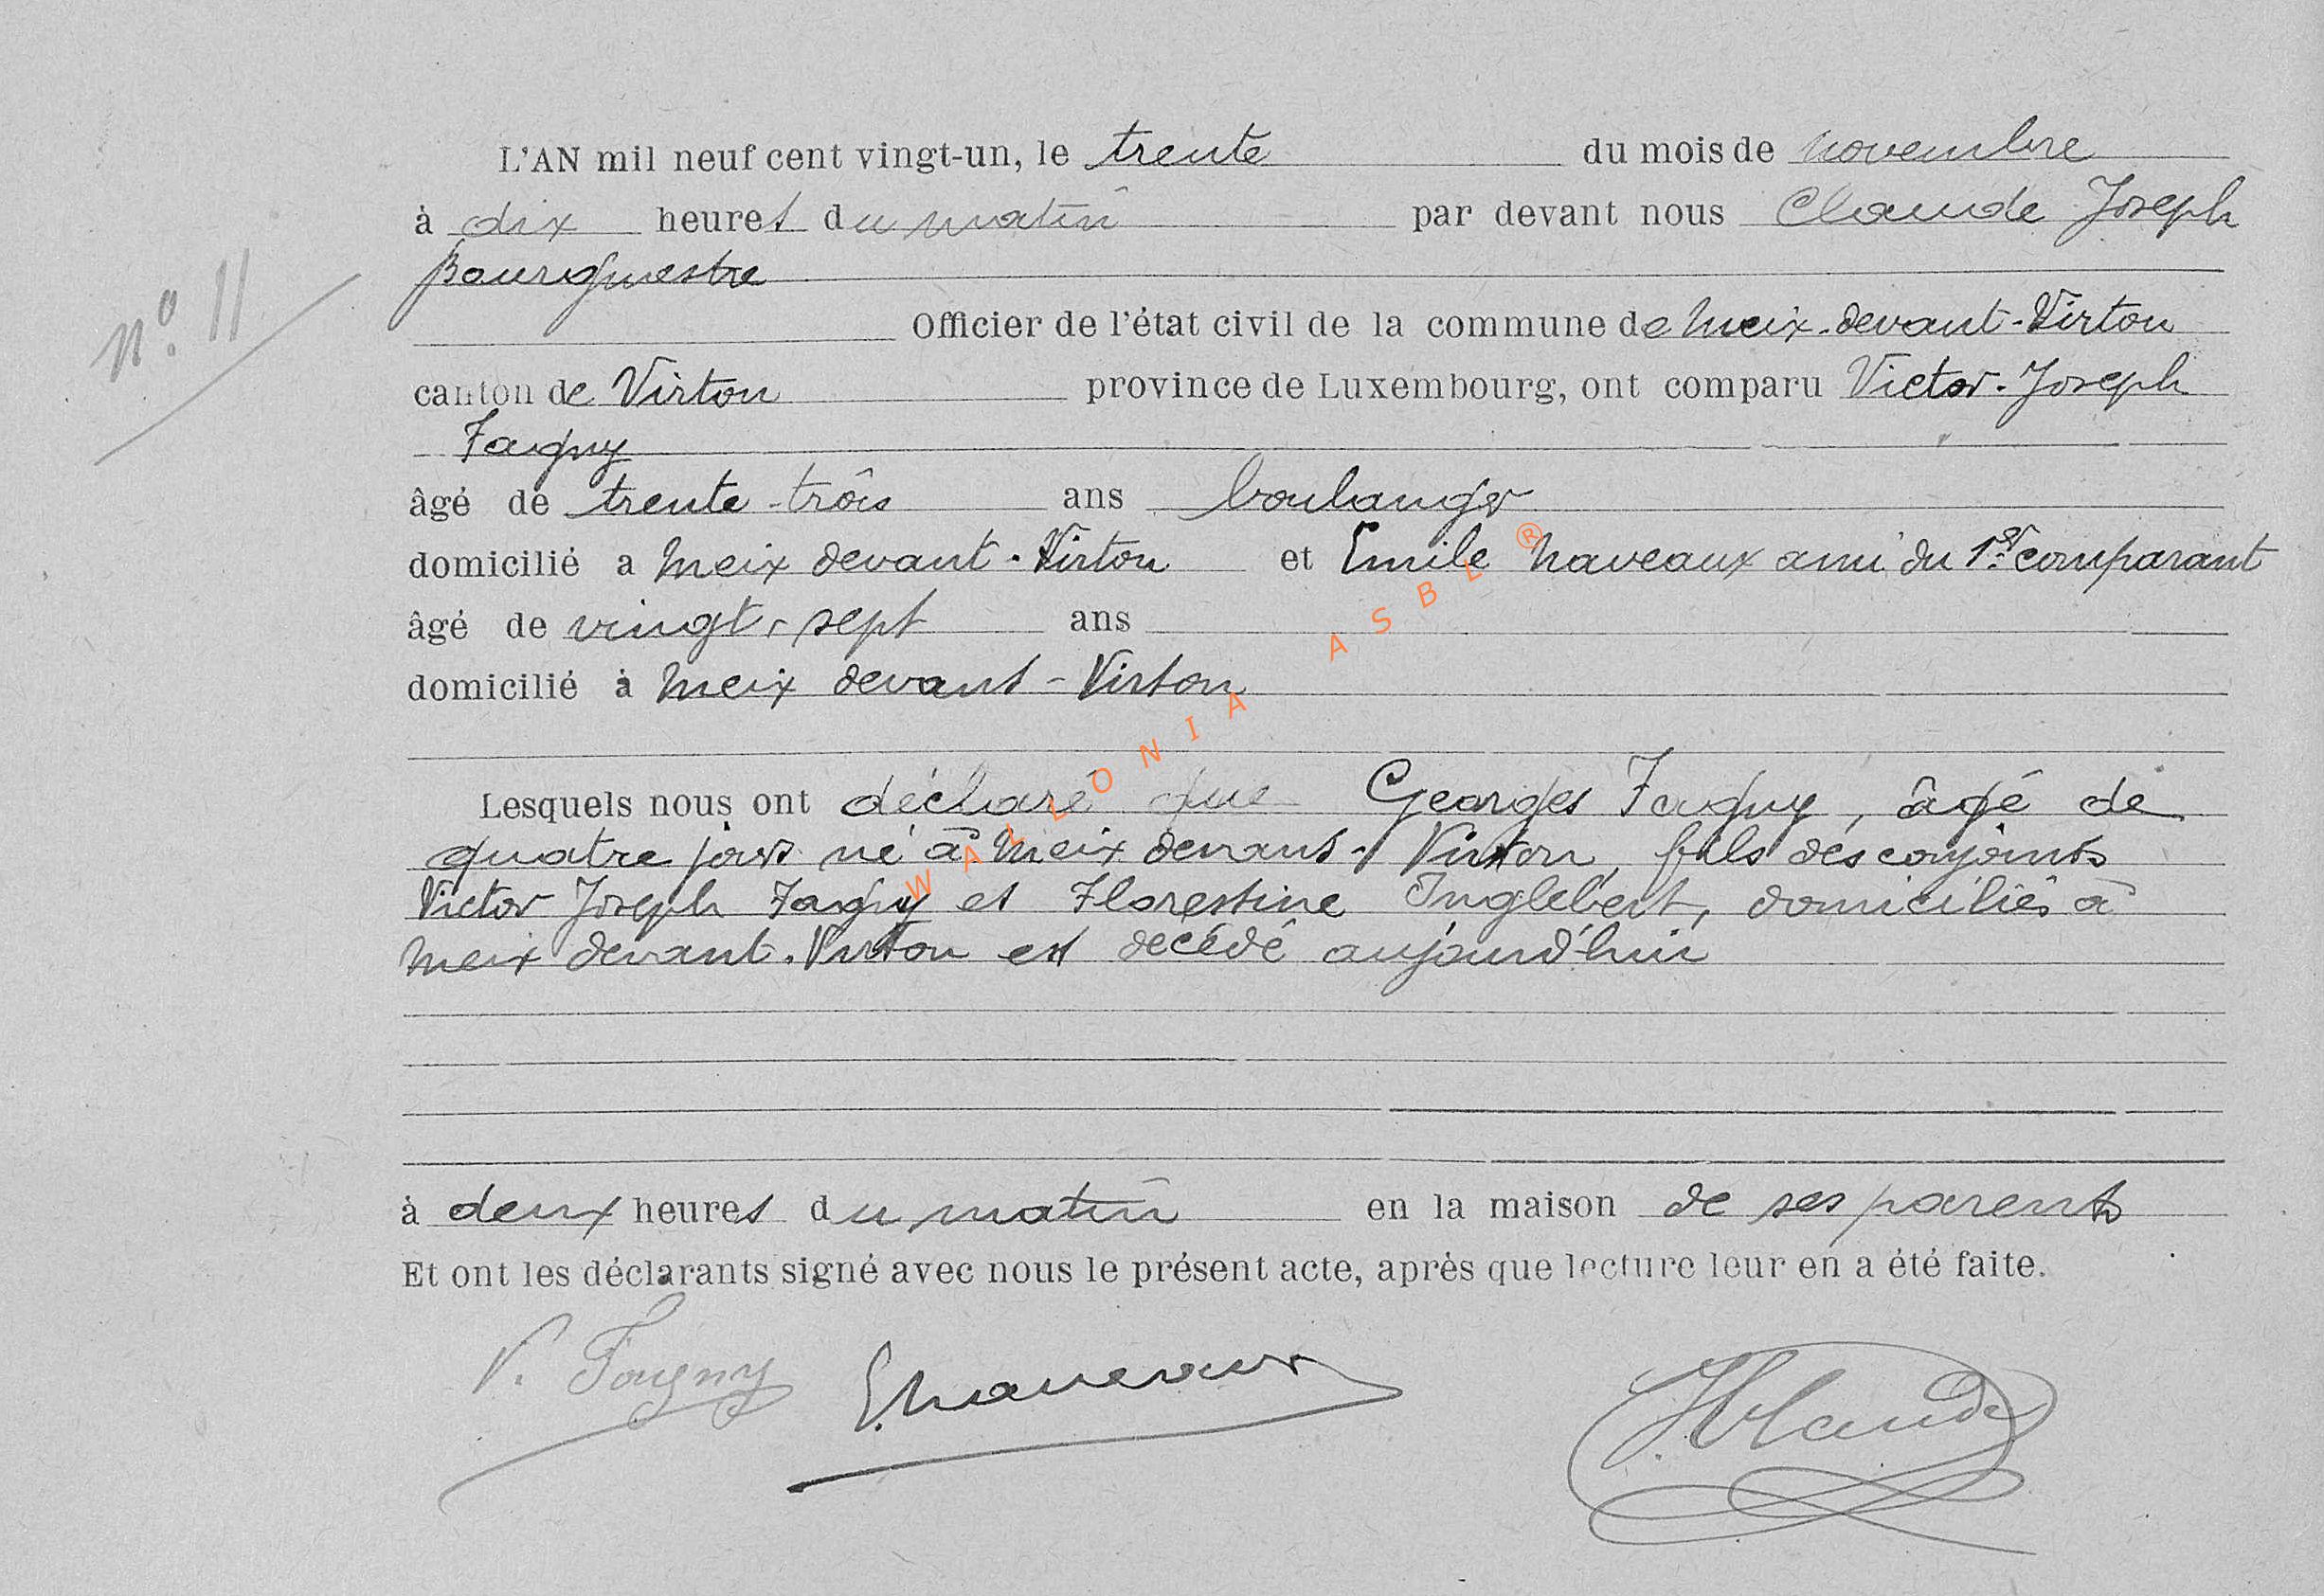 L'AN mil neuf cent vingt-un, le trente du mois de novembre
à dix heures du matin par devant nous Claude Joseph
Bourgmestre
N° 11
Officier de l'état civil de la commune de Meix-devant-Virton
canton de Virton province de Luxembourg, ont comparu Victor-Joseph
Fagny
âgé de trente-trois ans boulanger
domicilié a Meix devant-Virton et Emile Naveaux ami du 1er comparant
âgé de vingt-sept ans
domicilié à Meix devant-Virton
Lesquels nous ont déclaré que Georges Fagny, âgé de
quatre jours né à Meix devant-Virton, fils des conjoints
Victor Joseph Fagny et Florestine Inglebert, domiciliés à
Meix devant-Virton est décédé aujourd'hui
à deux heures du matin en la maison de ses parents
Et ont les déclarants signé avec nous le présent acte, après que lecture leur en a été faite.
V. Fagny E. Naveaux J. Claude
WALLONIA ASBL ®